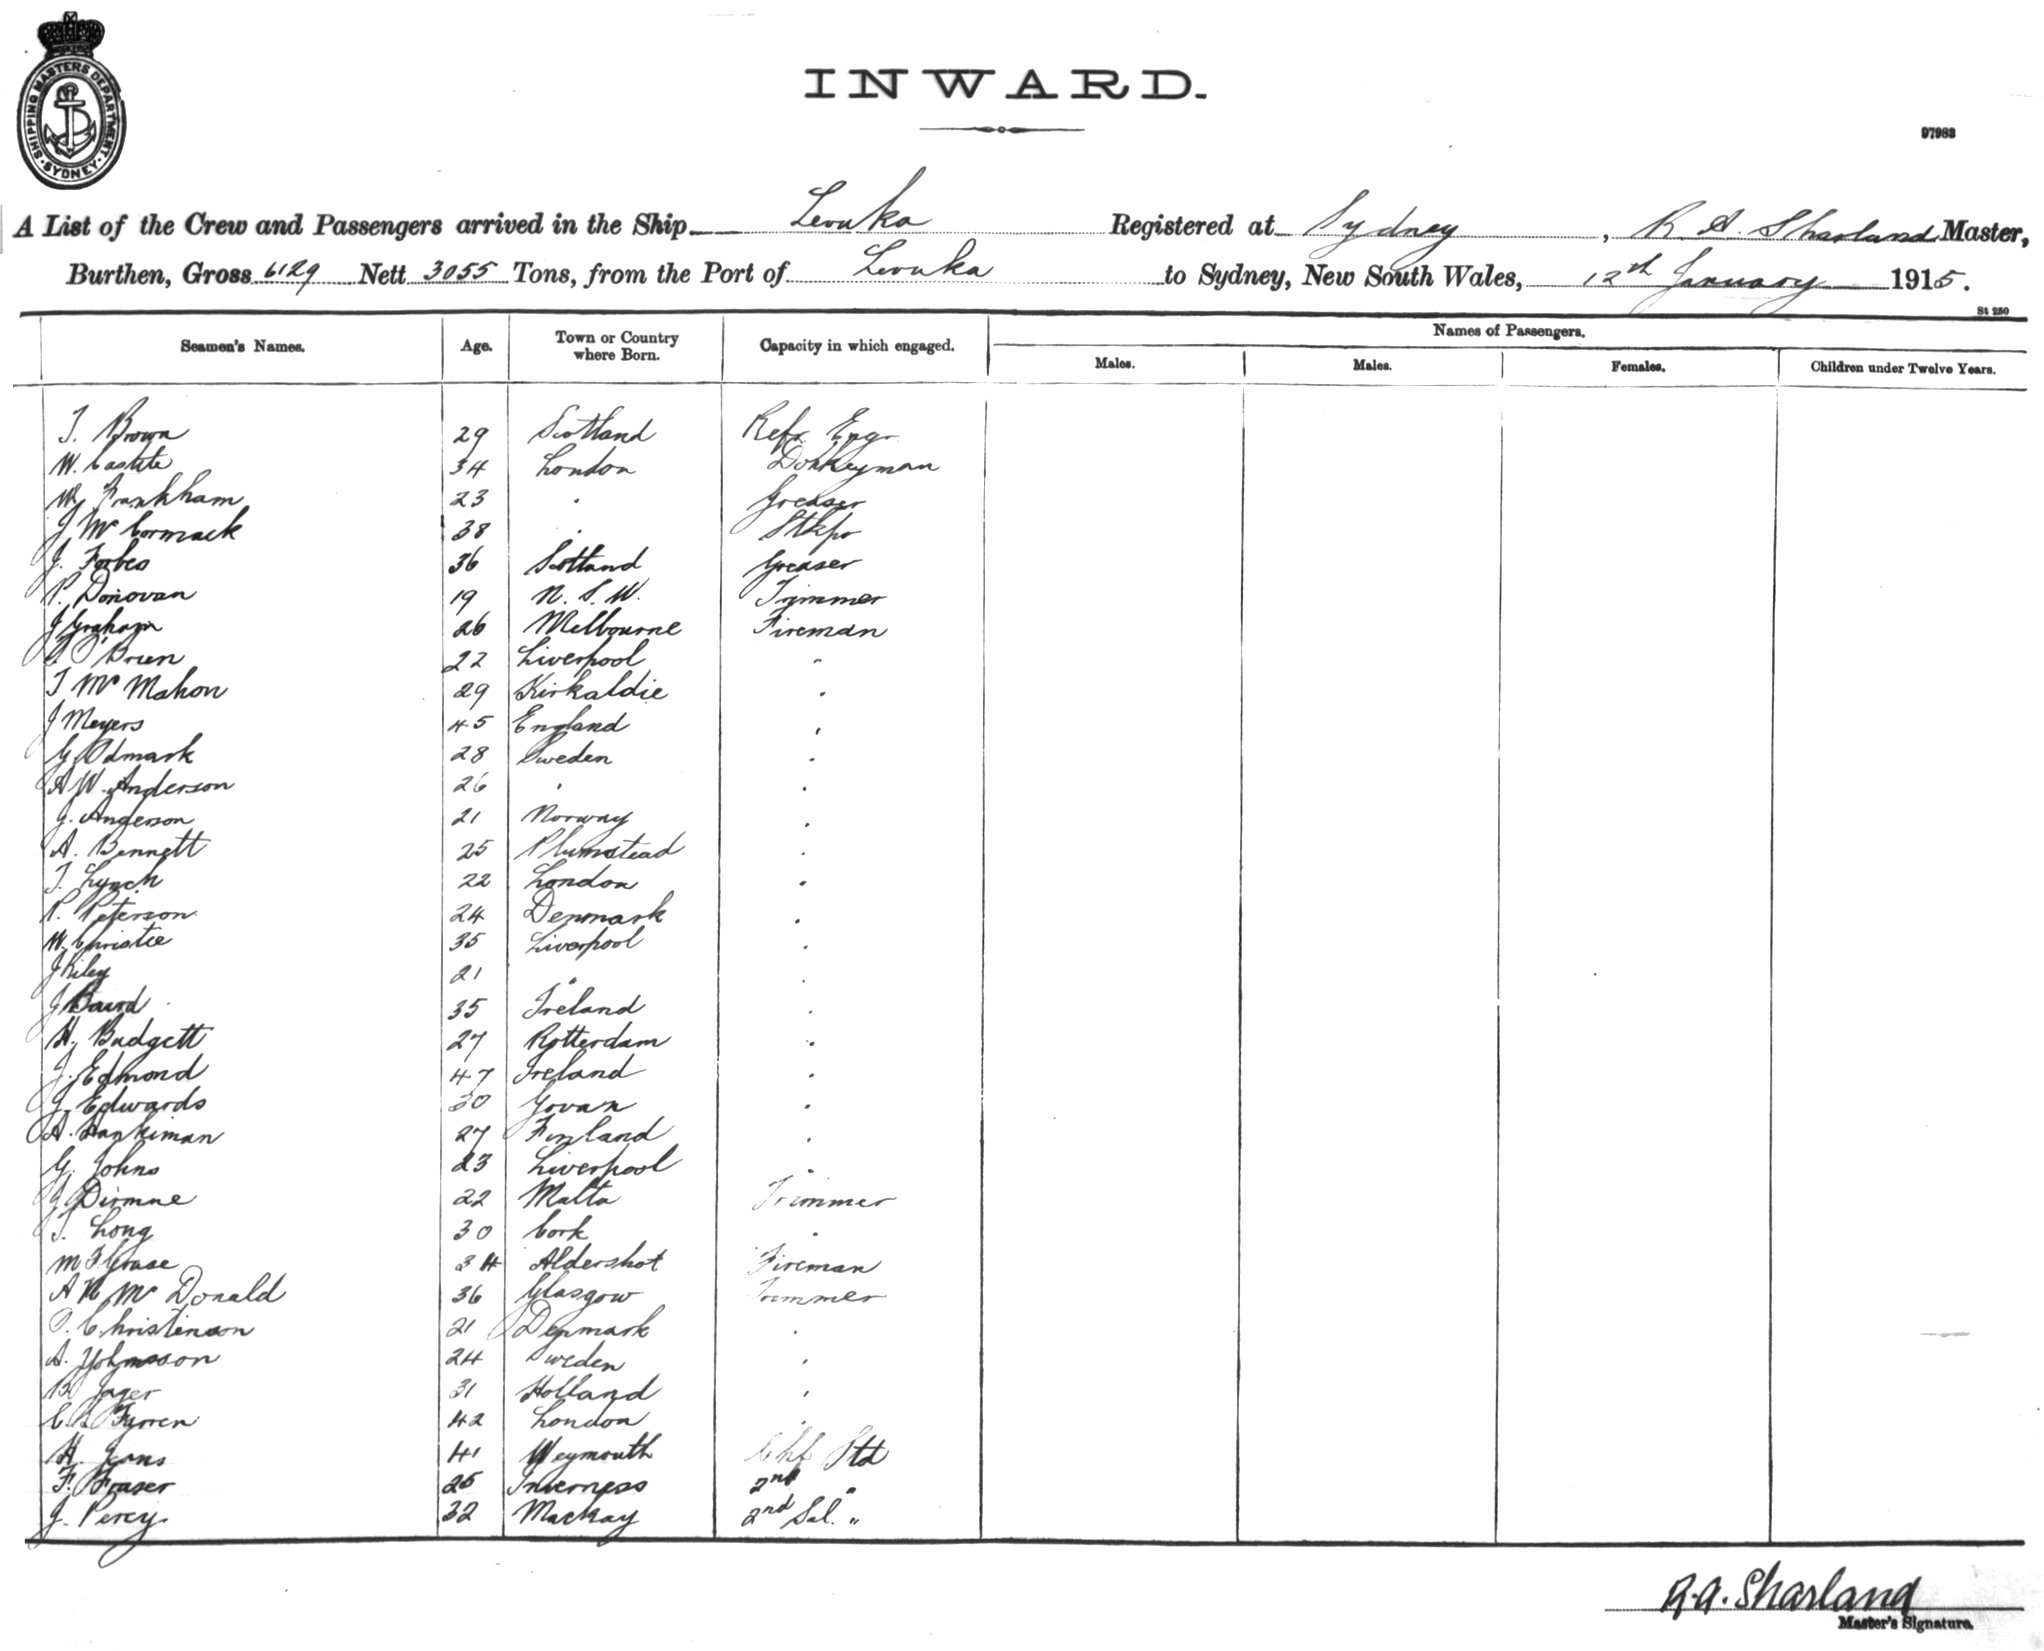 SHIPPING MASTERS DEPARTMENT
SYDNEY
INWARD.
97983
A List of the Crew and Passengers arrived in the Ship Levuka Registered at Sydney, R A. Sharland Master,
Burthen, Gross 6129 Nett 3055 Tons, from the Port of Levuka to Sydney, New South Wales, 12th January 1915.
St 250
Seamen's Names. Age. Town or Country where Born. Capacity in which engaged. Names of Passengers.
Males. Males. Females. Children under Twelve Years.
T. Brown 29 Scotland Refr Engr
W. 34 London Donkeyman
W. Frankham 23 " Greaser
J McCormack 38 " Stkpr
J. Forbes 36 Scotland Greaser
P. Donovan 19 N.S.W. Trimmer
J Graham 26 Melbourne Fireman
O'Brien 22 Liverpool "
T McMahon 29 Kirkaldie "
J Meyers 45 England "
G. Odmark 28 Sweden "
A W. Anderson 26 " "
J. Anderson 21 Norway "
A. Bennett 25 Plumstead "
T. Lynch 22 London "
P. Peterson 24 Denmark "
W. Christie 35 Liverpool "
J Riley 21 " "
J Baird 35 Ireland "
H. Badgett 27 Rotterdam "
J. Edmond 47 Ireland "
G. Edwards 30 Govan "
A. 27 Finland "
G. Johns 23 Liverpool "
22 Malta Trimmer
T. Long 30 Cork "
M 34 Aldershot Fireman
A McDonald 36 Glasgow Trimmer
Christenson 21 Denmark "
A. Yohnsson 24 Sweden "
Jager 31 Holland "
C. 42 London "
H. Jeans 41 Weymouth Chf Std
F. Fraser 25 Inverness 2nd "
J. Percy 32 Mackay 2nd Sal. "
R.A. Sharland
Master's Signature.